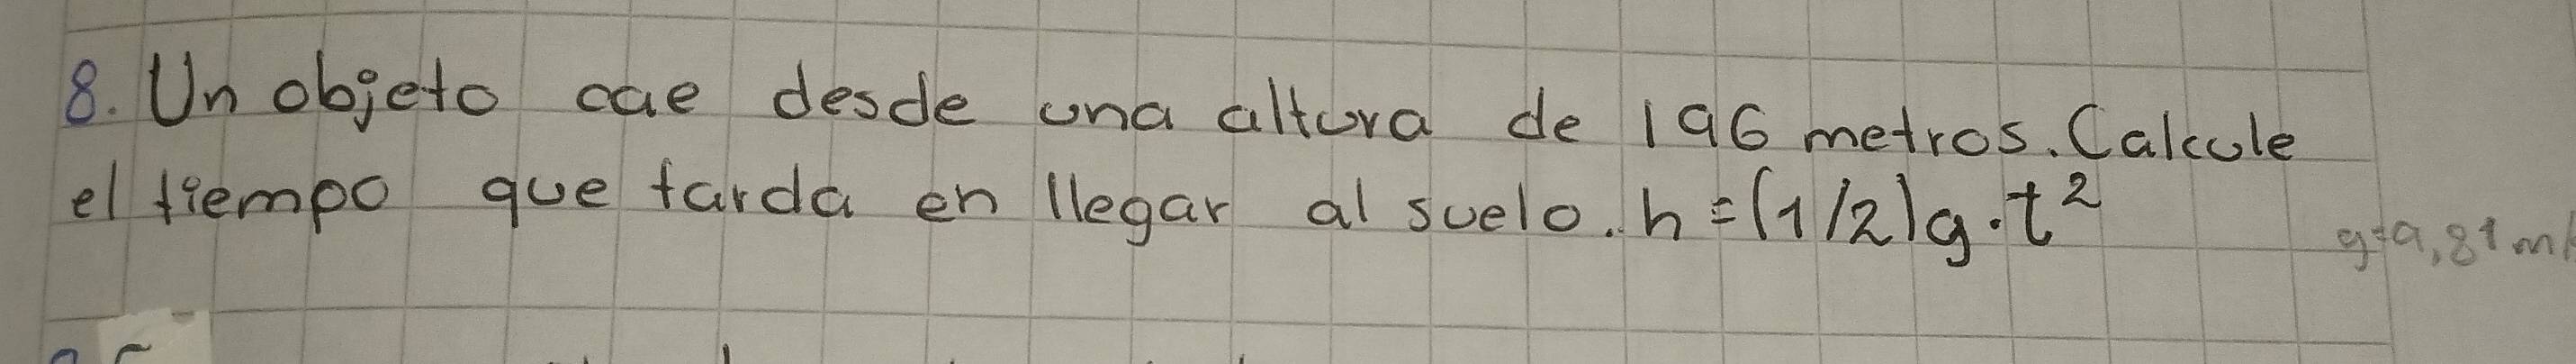 8. Un objeto cae desde una altura de 196 metros. Calcule
el tiempo que tarda en llegar al suelo. h = (1/2)g·t²
g=9,81 m/